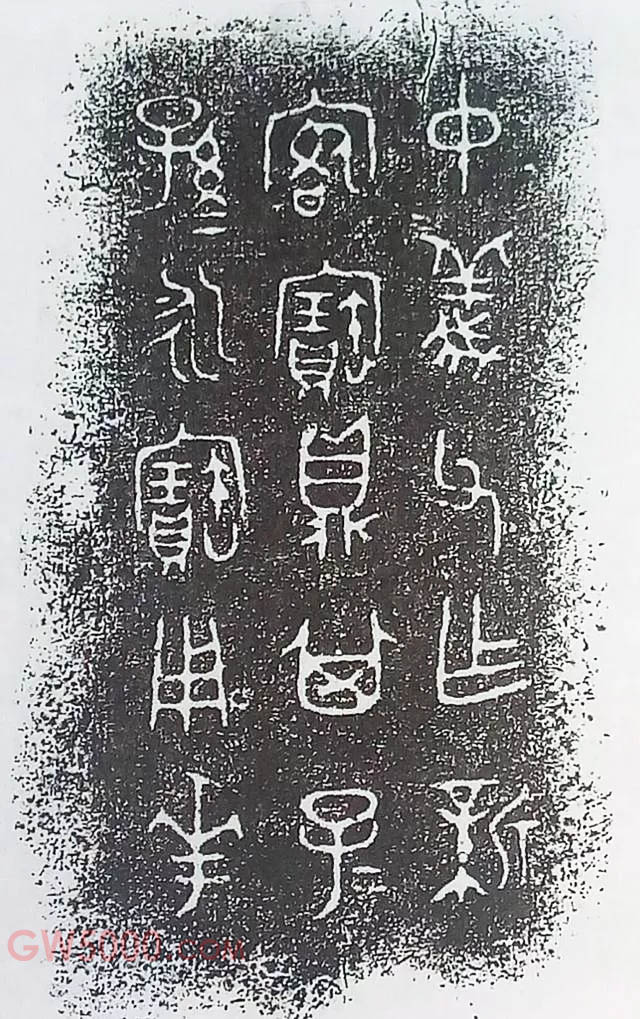 中義父乍新
客寶鼎其子=
孫=永寶用華
GW5000.com